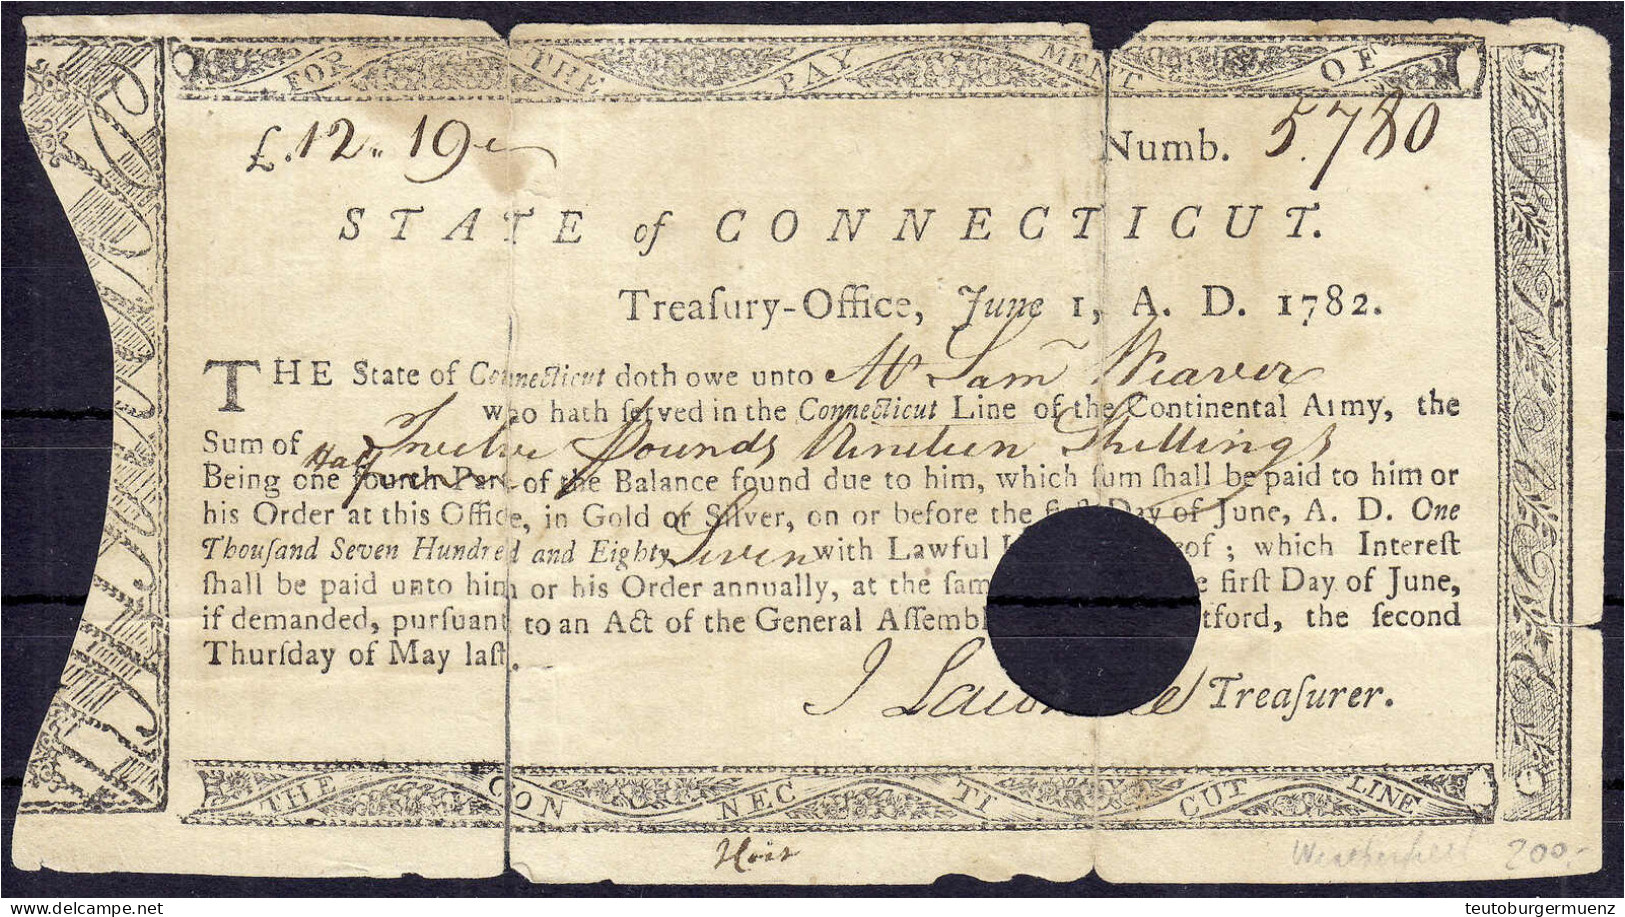 FOR THE PAYMENT OF
£.12.. 19
Numb. 5.780
STATE of CONNECTICUT.
Treaſury-Office, June 1, A. D. 1782.
THE State of Connecticut doth owe unto Mr Sam Weaver
who hath ſerved in the Connecticut Line of the Continental Army, the
Sum of Twelve Pounds Nineteen Shillings
Half
Being one fourth Part of the Balance found due to him, which ſum ſhall be paid to him or
his Order at this Office, in Gold or Silver, on or before the firſt Day of June, A. D. One
Thouſand Seven Hundred and Eighty Seven with Lawful of ; which Intereſt
ſhall be paid unto him or his Order annually, at the ſam e firſt Day of June,
if demanded, purſuant to an Act of the General Aſſembl tford, the ſecond
Thurſday of May laſt.
J Law ce Treaſurer.
THE CONNECTICUT LINE
200,-
teutoburgermuenz